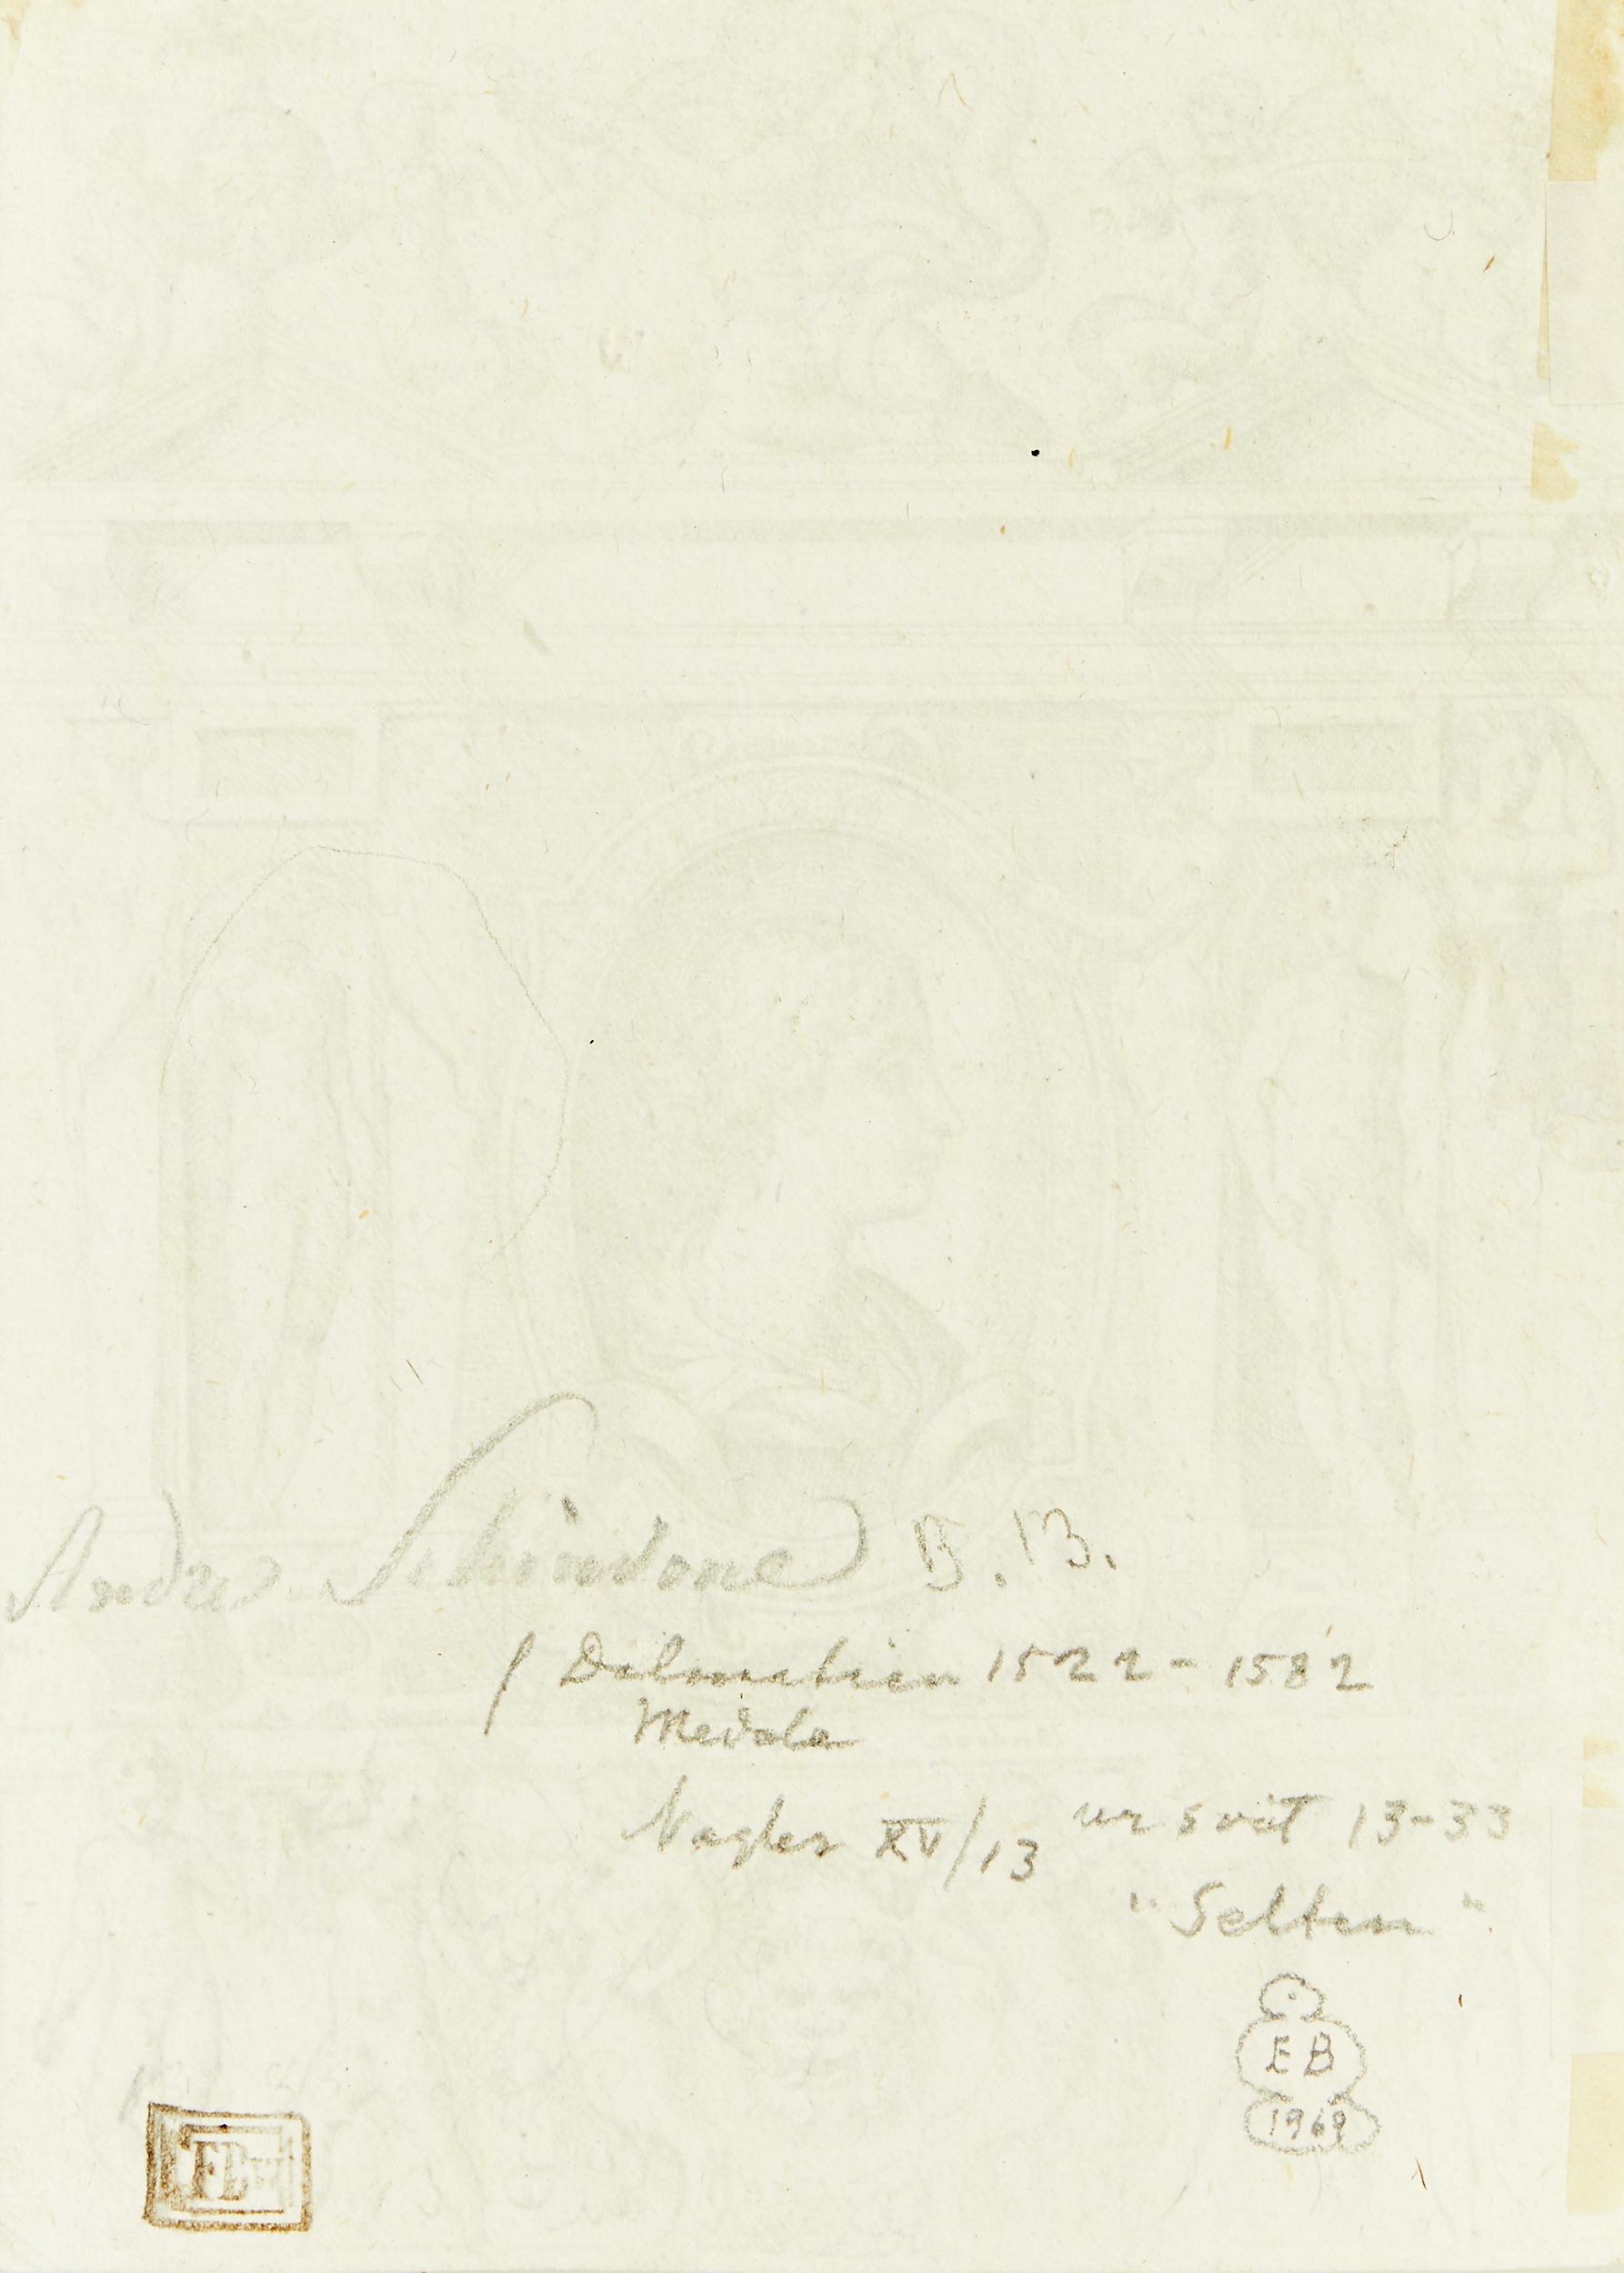 Andre Schiavone B. 13.
Dalmatien 1522-1582
Medola
Nagler XV/13 ur svit 13-33
"Selten".
EB
1969